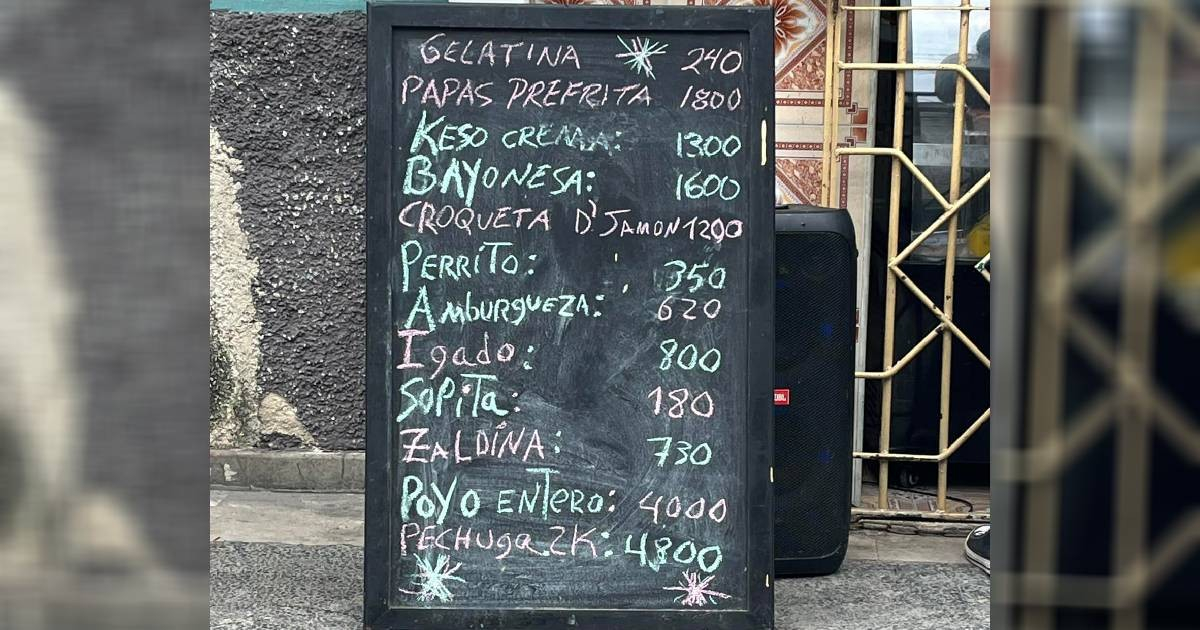 GELATINA 240
PAPAS PREFRITA 1800
KESO CREMA: 1300
BAYONESA: 1600
CROQUETA D'JAMON 1200
PERRITO: 350
AMBURGUEZA: 620
Igado: 800
SOPITA: 180
ZALDINA: 730
POYO ENTERO: 4000
PECHUga 2K: 4800
JBL